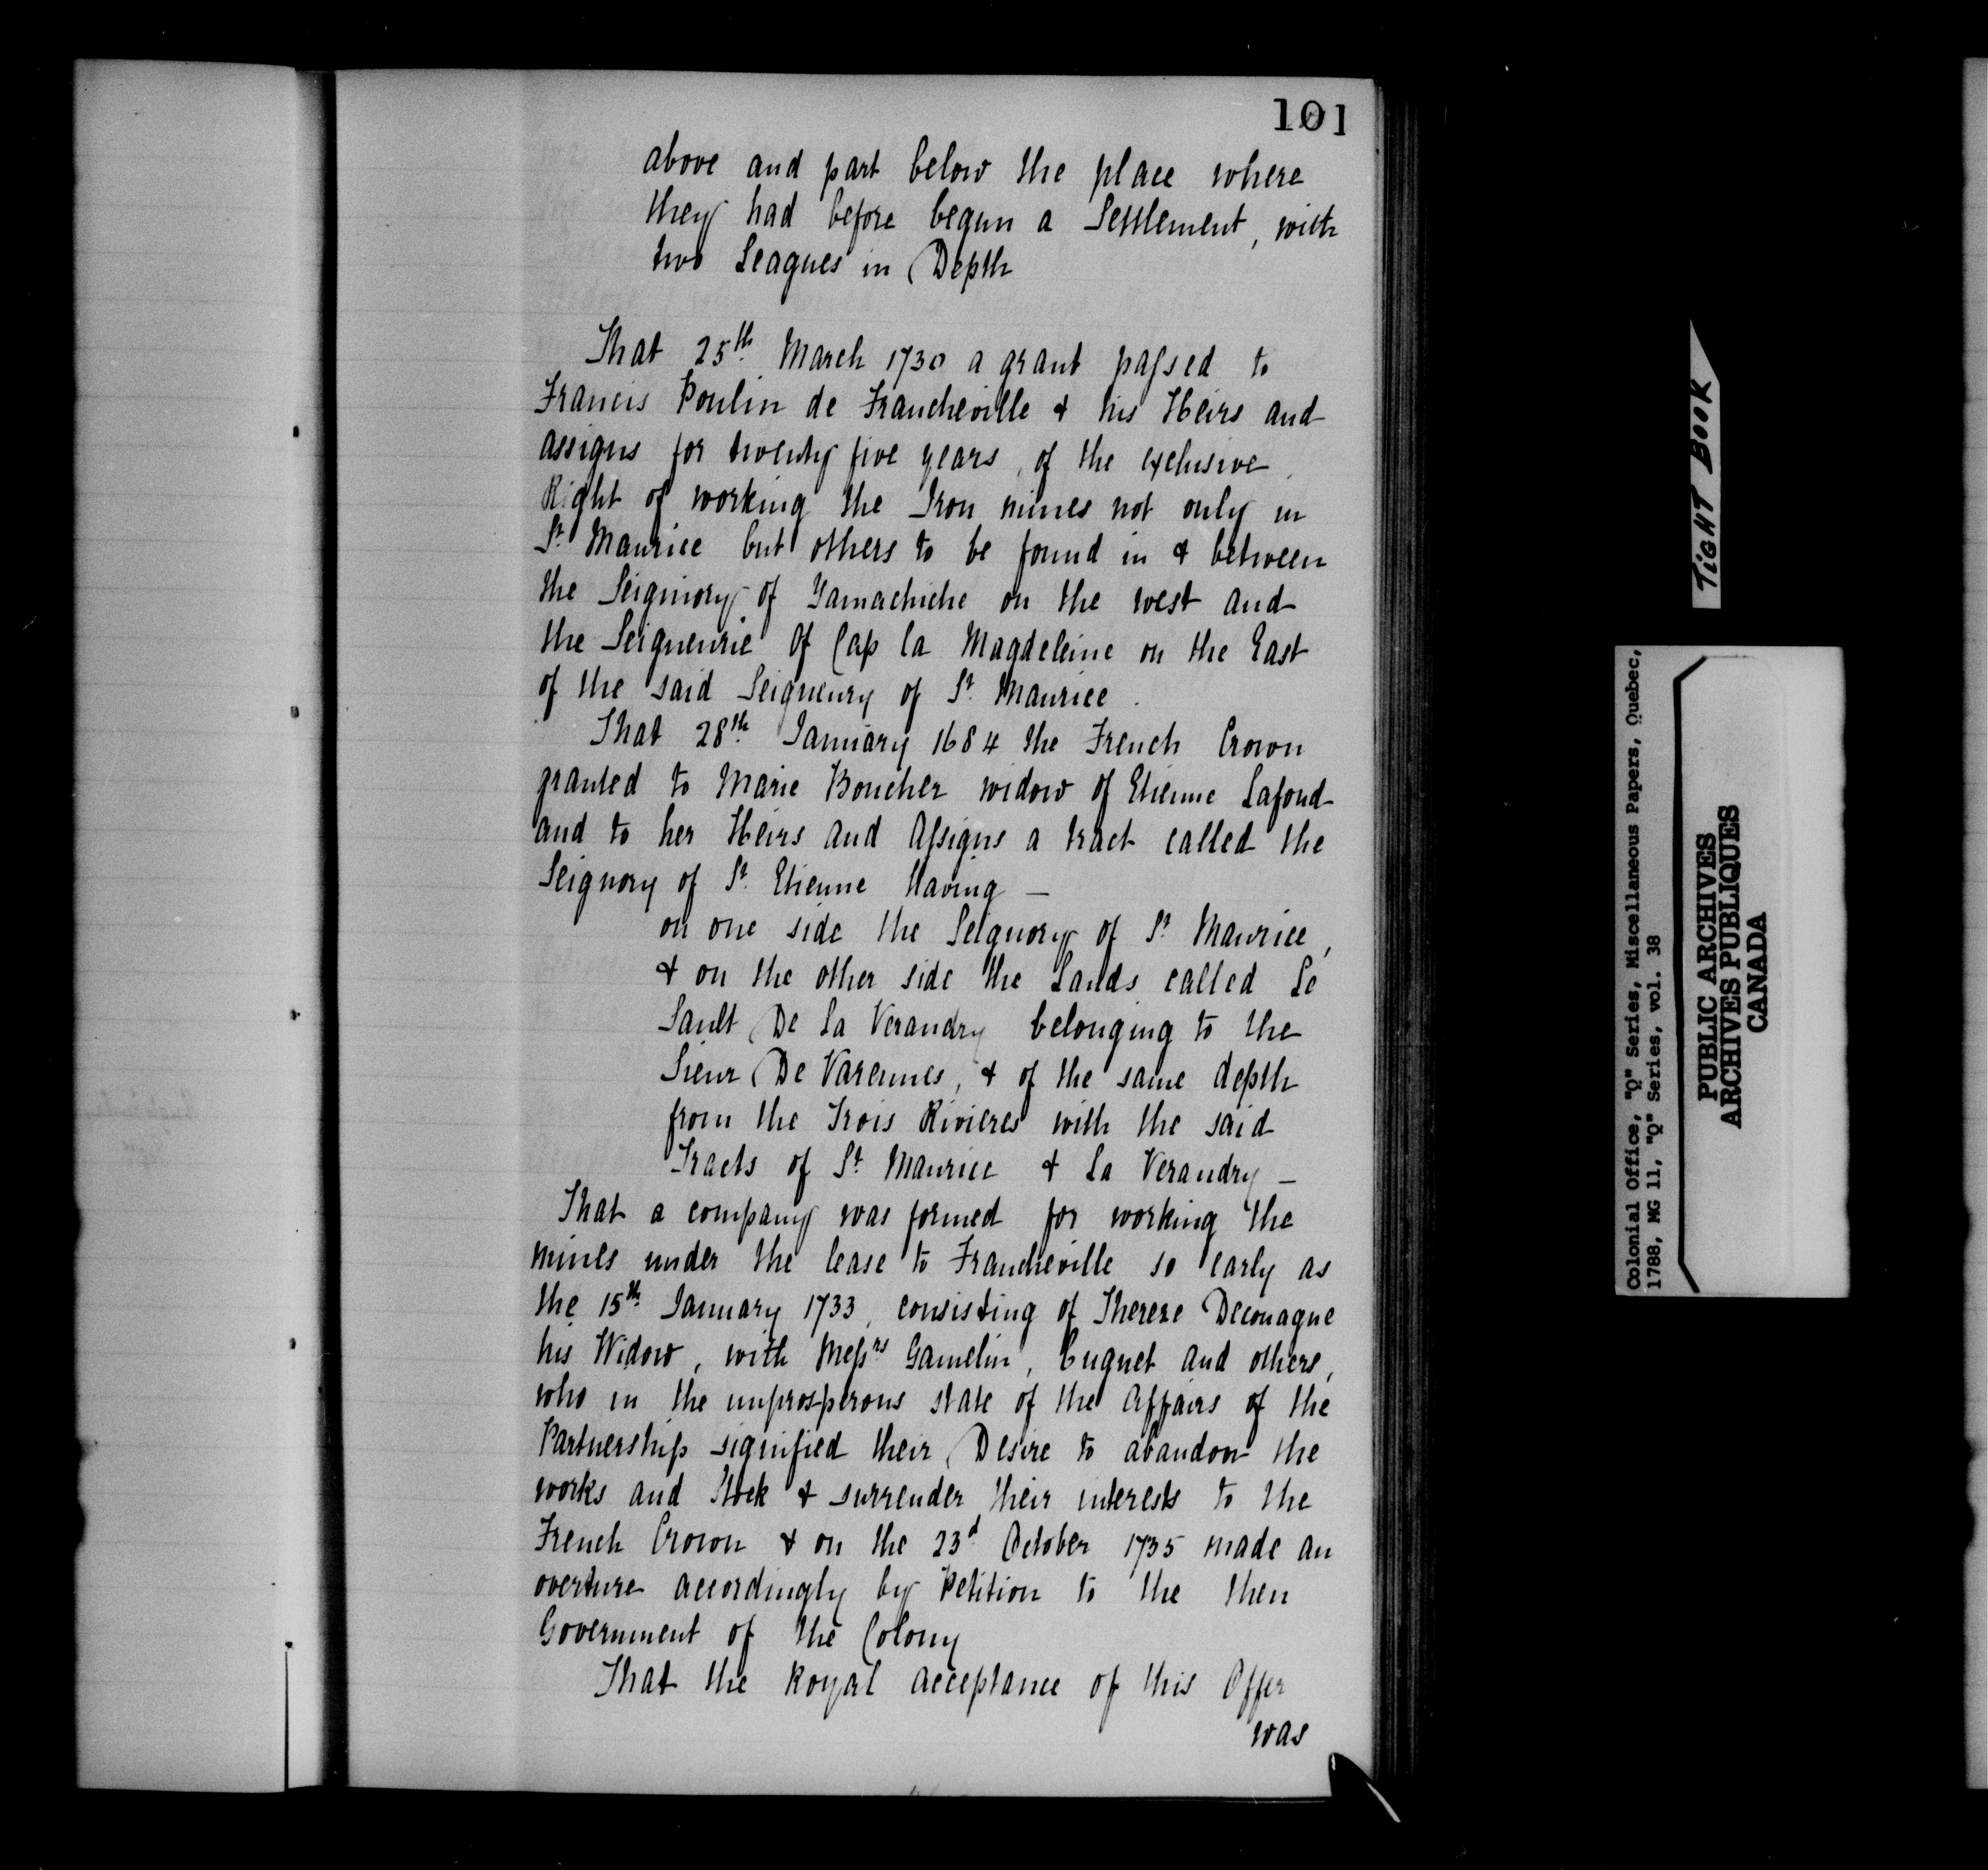 101
above and part below the place where
they had before begun a Settlement, with
two Leagues in Depth
That 25th March 1730 a grant passed to
Francis Poulin de Francheville & his Heirs and
assigns for twenty five years, of the exclusive
Right of working the Iron mines not only in
St. Maurice but others to be found in & between
the Seigniory of Yamachiche on the west and
the Seigneurie of Cap la Magdeleine on the East
of the said Seigneury of St. Maurice.
That 28th January 1684 the French Crown
granted to Marie Boucher widow of Etienne Lafond
and to her Heirs and Assigns a tract called the
Seignory of St. Etienne Having —
on one side the Seignory of St. Maurice,
& on the other side the Lands called Le
Sault De La Verandry belonging to the
Sieur De Varennes, & of the same depth
from the Trois Rivieres with the said
Tracts of St. Maurice & La Verandry —
That a company was formed for working the
mines under the lease to Francheville so early as
the 15th January 1733, consisting of Therese Deconague
his Widow, with Messrs Gamelin, Cugnet and others,
who in the unprosperous state of the Affairs of the
Partnership signified their Desire to abandon the
works and Stock & surrender their interests to the
French Crown & on the 23d October 1735 made an
overture accordingly by Petition to the then
Government of the Colony
That the Royal acceptance of this Offer
was
TIGHT BOOK
Colonial Office, "Q" Series, Miscellaneous Papers, Quebec,
1788, MG 11, "Q" Series, vol. 38
PUBLIC ARCHIVES
ARCHIVES PUBLIQUES
CANADA